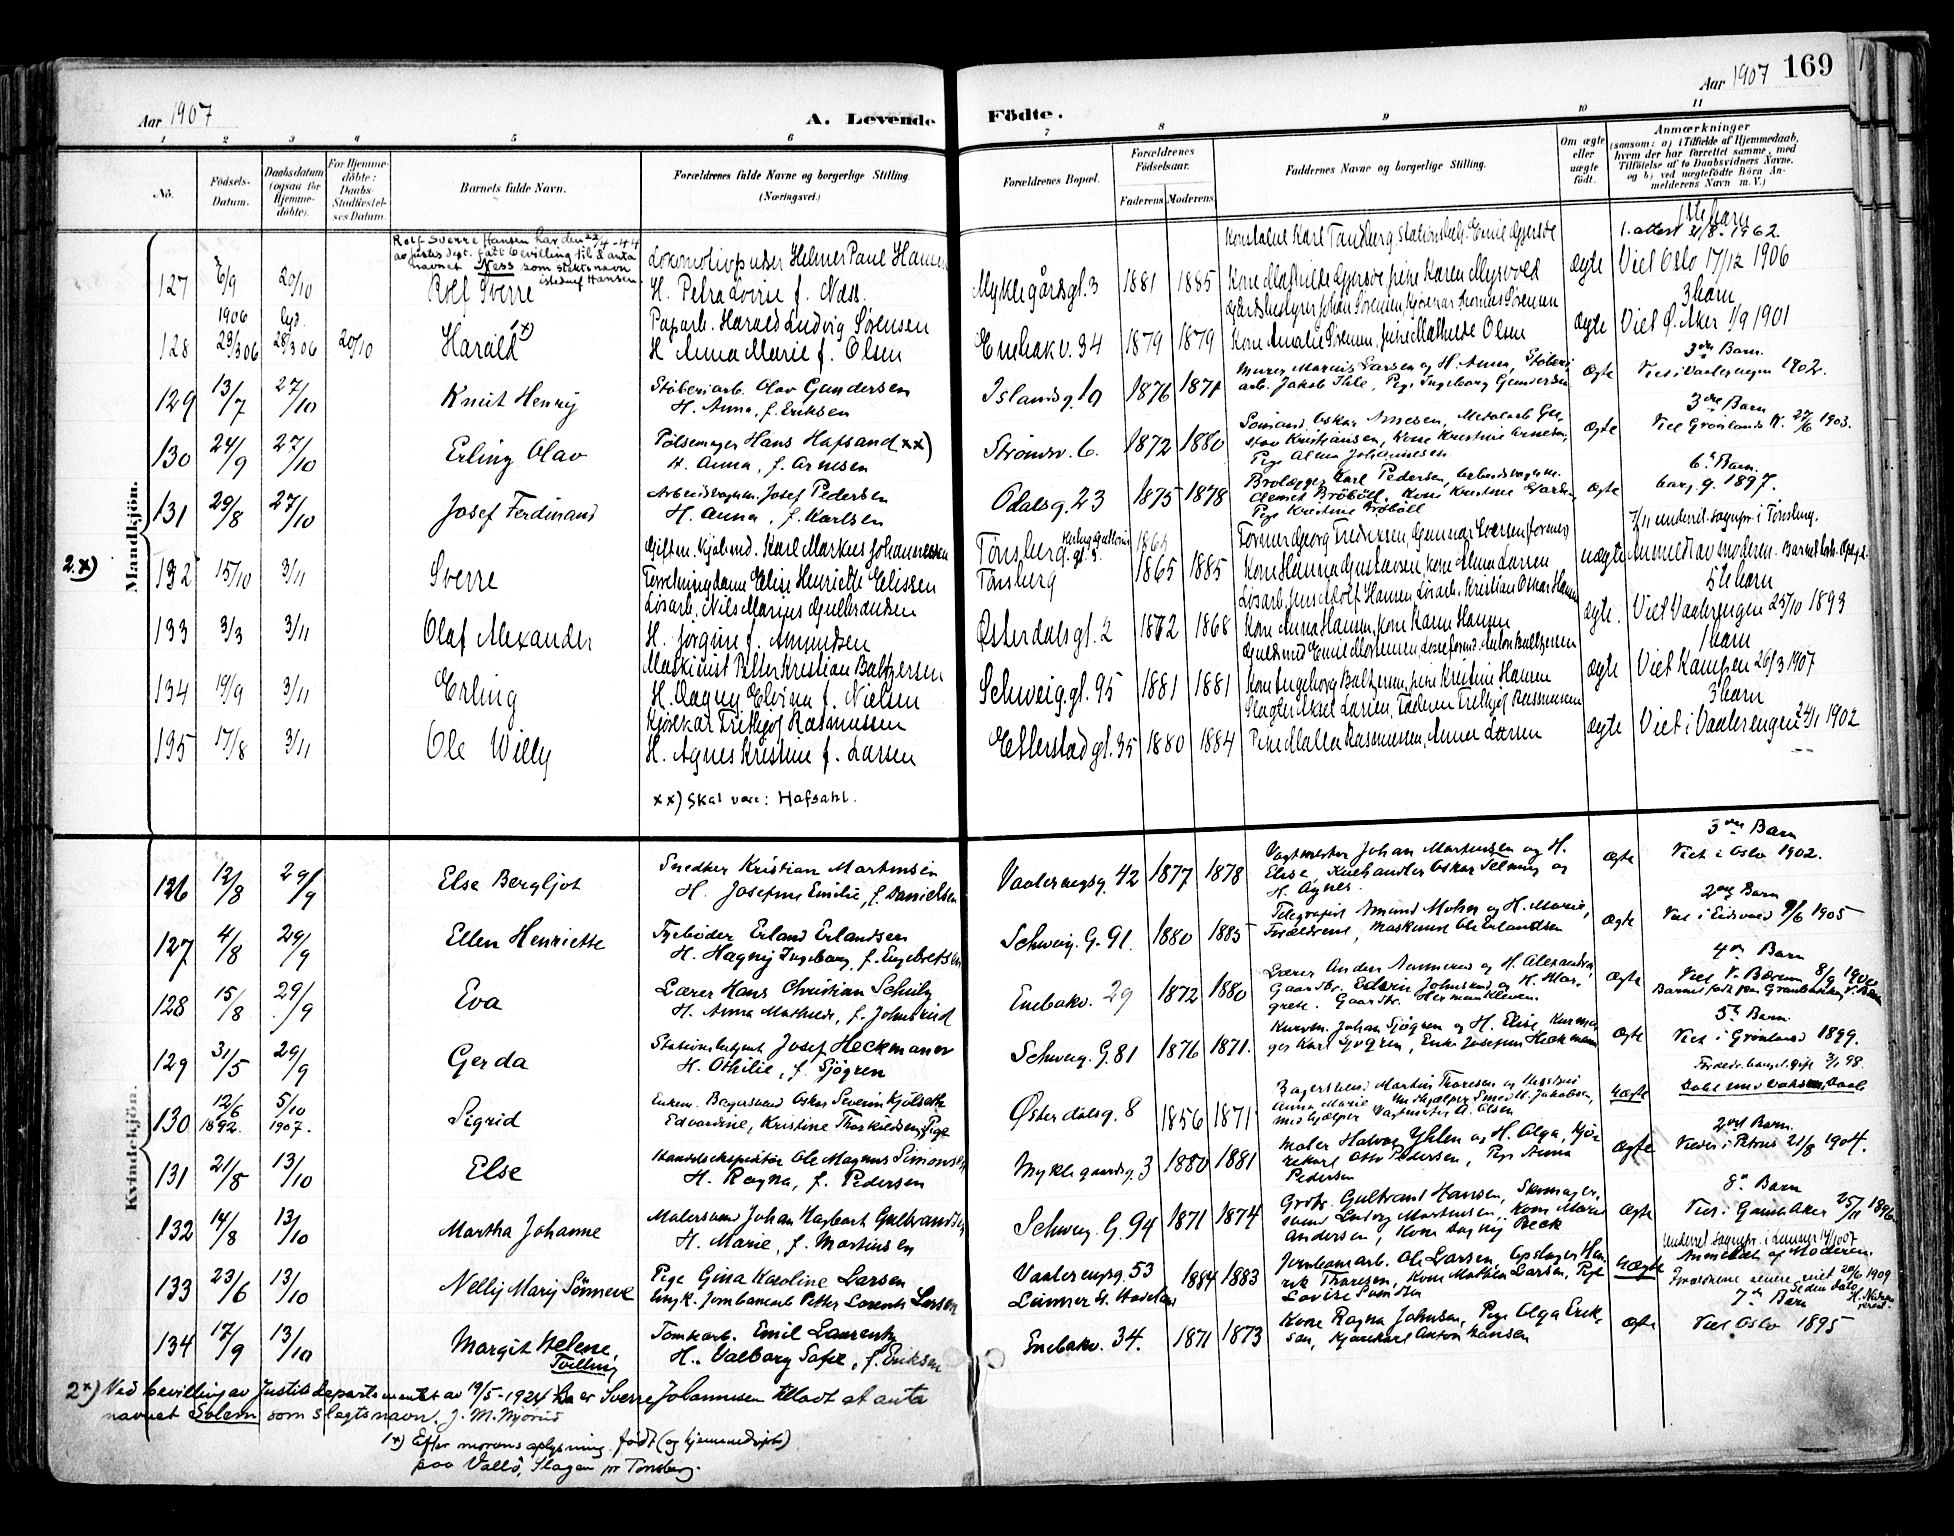 Aar 1907
A. Levende
Födte.
Aar 1907
169
1 2 3 4 5 6 7 8 9 10 11
Nö.
Födsels-Datum.
Daabsdatum (ogsaa for Hjemmedöbte).
For Hjemmedöbte: Daabs-Stadfæstelses Datum.
Barnets fulde Navn.
Forældrenes fulde Navne og borgerlige Stilling (Næringsvei.)
Forældrenes Bopæl.
Forældrenes Födselsaar.
Faderens. Moderens.
Faddernes Navne og borgerlige Stilling.
Om ægte eller uægte födt.
Anmærkninger (saasom: a) i Tilfælde af Hjemmedaab, hvem der har forrettet samme, med Tilföielse af to Daabsvidners Navne, og b) ved uægtefödte Börn Anmelderens Navn m. V.)
Mandkjön.
Rolf Sverre Hansen har den 22/4-44
av Justis dept. fått bevilling til å anta
navnet Ness som slektsnavn
istedenf. Hansen
127 6/9 20/10 Rolf Sverre
Lokomotivpudser Helmer Paul Hansen
H. Petra Lovise f. Næss.
Myklegårdsgt. 3 1881 1885
ægte
1ste barn
1. attest 21/8-1962.
Viet Oslo 17/12 1906
128 1906 29/3 06 28/3 06 20/10 Harald 1x)
Paparb. Harald Ludvig Sørensen
H Anna Marie f. Olsen
Enebakv. 34 1879 1879
Kone Amalie Sørensen, pine Mathilde Olsen
ægte
3 barn
Viet Ø. Aker 1/9 1901
129 13/7 27/10 Knut Henry
Støberiarb. Olav Gundersen
H. Anna, f. Eriksen
Islandsg. 10 1876 1871
Murer Marius Larsen og H. Anna, Støberi
arb. Jakob Ihle, Pige Ingeborg Gundersen
ægte
3die Barn.
Viet i Vaalerengen 1902.
130 24/9 27/10 Erling Olav
Pølsemager Hans Hafsand xx)
H. Anna, f. Arnesen
Strømsv. 6. 1872 1880
Sømand Oskar Arnesen, Metalarb. Gu-
stav Kristiansen, Kone Kristine Arnesen,
Pige Alma Johannesen
ægte
3die Barn
Viet Grønlands K. 27/6 1903.
131 29/8 27/10 Josef Ferdinand
Arbeidsvognm. Josef Pedersen
H. Anna, f. Karlsen
Odalsg. 23 1875 1878
Brolægger Karl Pedersen, Arbeidsvognm.
Clemet Brøbøll, Kone Kristine Larsen
Pige Kristine Brøbøll
ægte
6te Barn.
borg. g. 1897.
2.x) 132 15/10 3/11 Sverre
Gift m. Kjøbmd. Karl Markus Johannessen
Forretningsdame Elise Henriette Elissen
Tønsberg
Tønsberg 1865 1885
Former Georg Fredriksen, Gunnar Iversen (former)
Kone Hanna Gustavsen, kone Alma Larsen
uægte
7/11 underret. sognepr. i Tønsberg.
Anmeldt av moderen.
133 3/3 3/11 Olaf Alexander
Løsarb. Nils Marius Gulbrandsen
H. Jørgine f. Amundsen
Østerdalsgt. 2 1872 1868
Løsarb. Jens Adolf Hansen, Løsarb. Kristian Oskar Hansen
Kone Anna Hansen, kone Karen Hansen
ægte.
5te barn
Viet Vaalerengen 25/10 1893
134 19/9 3/11 Erling
Maskinist Petter Kristian Baltzersen
H. Dagny Elvina f. Nielsen
Schweig.gt. 95 1881 1881
Kone Ingeborg Baltzersen, pine Kristine Hansen
ægte
1 barn
Viet Kampen 26/3 1907
135 17/8 3/11 Ole Willy
Kjørekar Frithjof Rasmussen
H. Agnes Kristine f. Larsen
Etterstadgt. 35 1880 1884
Slagter Aksel Larsen, Faderen Frithjof Rasmussen
Pine Malla Rasmussen, Anna Larsen
ægte
3 barn
Viet i Vaalerengen 24/1 1902
xx) Skal være: Hafsahl.
Kvindekjön.
126 12/8 29/9 Else Bergljot
Snedker Kristian Martinsen
H. Josefine Emilie, f. Danielsen
Vaalerengsg. 42 1877 1878
Vagtmester Johan Martinsen og H.
Elise, Kulhandler Oskar Telning og
H. Agnes.
ægte
3die Barn
Viet i Oslo 1902.
127 4/8 29/9 Ellen Henriette
Fyrbøder Erland Erlandsen
H. Hagny Ingeborg, f. Engebretsen
Schweig. G. 91. 1880 1885
Telegrafist Amund Mohn og H. Marie,
Forældrene, Maskinist Ole Erlandsen
ægte
2det Barn
Viet i Eidsvold 9/6 1905
128 15/8 29/9 Eva
Lærer Hans Christian Schulz
H. Anna Mathilde, f. Johnsrud
Enebakv. 29 1872 1880
Gaardbr. Edvin Johnsrud og H. Mar-
grete. Gaardbr. Herman Kleven.
ægte
4de Barn
Viet V. Bærum 8/9 1900
129 31/5 29/9 Gerda
Stationsbetjent Josef Heckmaner
H. Othilie, f. Sjögren
Schweig. G. 81 1876 1871.
Kurvm. Johan Sjögren og H. Elise, Kurvma-
ger Karl Sjögren, Enke Josefine Heckmann
ægte
5te Barn.
Viet i Grønland 1899.
130 12/6 1892. 5/10 1907. Sigrid
Enkem. Bagersvend Oskar Severin Kjölseth
Edvardine, Kristine Thorkildsen, Pige
Østerdalsg. 8 1856 1871
Bagersvend Martin Thoresen og Hustru
Anna Marie
uægte
Forældr. borgel. gift 3/1 98.
Døbt under Voksen Daab
131 21/8 13/10 Else
Handelsekspeditør Ole Magnus Simonsen
H. Ragna, f. Pedersen
Myklegaardsg. 3 1880 1881
Maler Halvor Yhlen og H. Olga, Kjø-
rekarl Otto Pedersen, Pige Anna
Pedersen
ægte
2det Barn.
Viede i Petrus 21/8 1904.
132 14/8 13/10 Martha Johanne
Malersvend Johan Hagbart Gulbrandsen
H. Marie, f. Martinsen
Schweig. G. 94 1871 1874
Grovs. Gulbrand Hansen, Skomager-
svend Ludvig Martinsen, Kone Marie
Andersen, Kone Dagny Beck
ægte
8de Barn
Viet i Gamle Aker 25/11 1896
133 23/6 13/10 Nelly Mary Sönneve
Pige Gina Karoline Larsen
Ungk. Jernbanearb. Petter Lorentz Larsen
Vaalerengsg. 53
Lunner St. Hadeland 1884 1883
Jernbanearb. Ole Larsen, Opslager Hen-
rik Thoresen, Kone Mathea Larsen, Pige
Lovise Svendsen
uægte
Underret. sognepr. i Lunner 14/10 07
Anmeldt af Moderen.
Forældrene senere viet 20/6 1909
134 17/9 13/10 Margit Helene, Tvilling
Tomtearb. Emil Laurentz
H. Valborg Sofie, f. Eriksen
Enebakv. 34. 1871 1873
Kone Ragna Johnsen, Pige Olga Erik-
sen, Kjørekarl Anton Hansen
ægte
7de Barn
Viet Oslo 1895
2x) Ved bevilling av Justitsdepartementet av 19/5-1924 har Sverre Johannessen tilladt at anta
navnet Solem som slegtsnavn. J. M. Mjørud
1x) Efter morens oplysning født (og hjemmedøpt)
paa Vallø, Slagen pr Tønsberg.